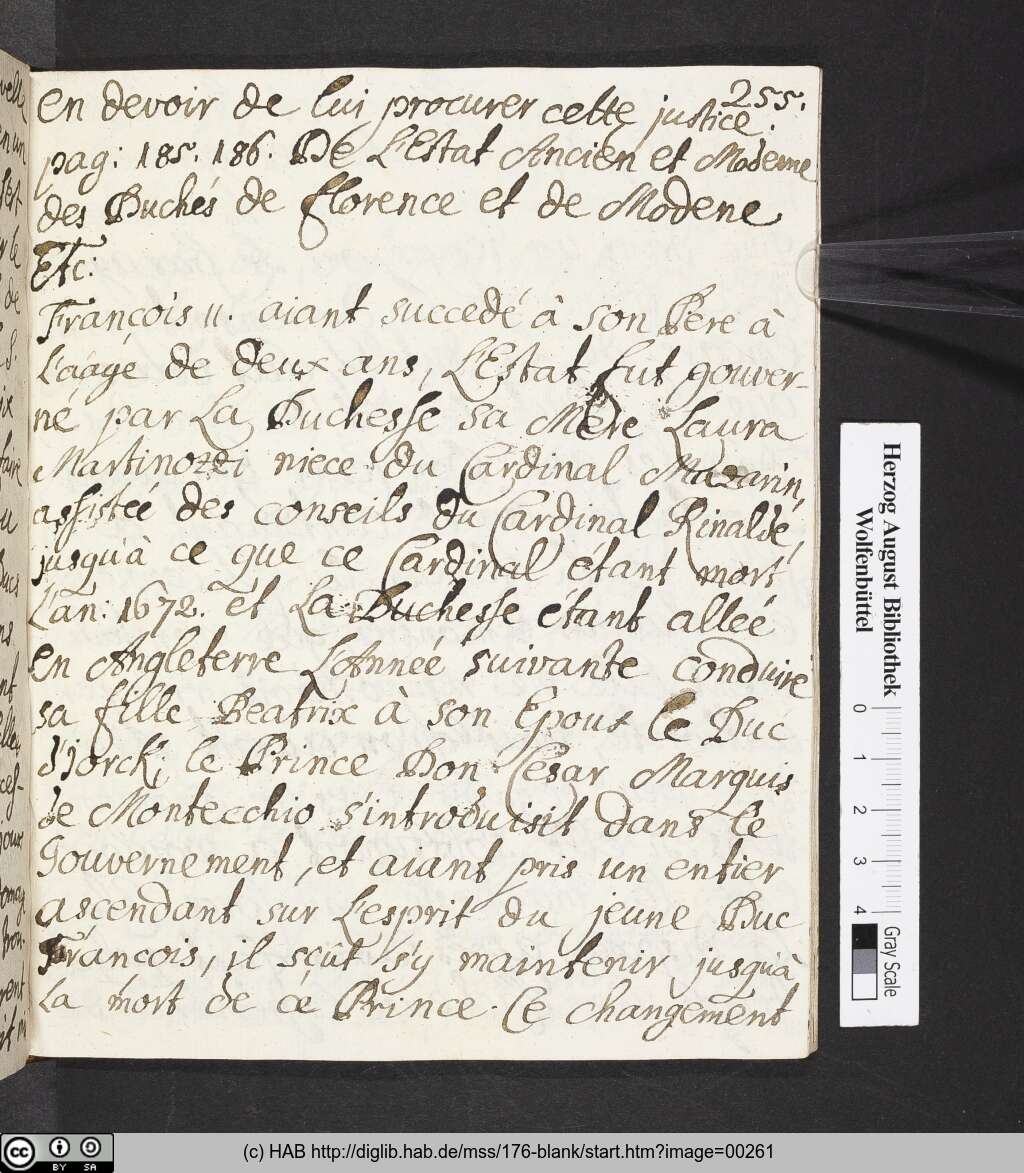 255.
en devoir de lui procurer cette justice.
pag: 185. 186. De L'Estat Ancien et Moderne
des Duchés de Florence et de Modene
Etc:
François II. aiant succedé à son Pere à
l'aáge de deux ans, L'Estat fut gouver-
né par La Duchesse sa Mere Laura
Martinozzi niece du Cardinal Mazarin,
assisteé des conseils du Cardinal Rinaldé,
jusqu'à ce que ce Cardinal étant mort
L'an: 1672. et La Duchesse étant alleé
en Angleterre L'Anneé suivante conduire
sa fille Beatrix à son Epoux le Duc
d'Jorck; le Prince Don Cesar Marquis
de Montecchio s'introduisit dans le
Gouvernement, et aiant pris un entier
ascendant sur L'esprit du jeune Duc
François, il sçût s'y maintenir jusqu'à
La mort de ce Prince. Ce changement
Herzog August Bibliothek
Wolfenbüttel
0 1 2 3 4
Gray Scale
cc BY SA
(c) HAB http://diglib.hab.de/mss/176-blank/start.htm?image=00261